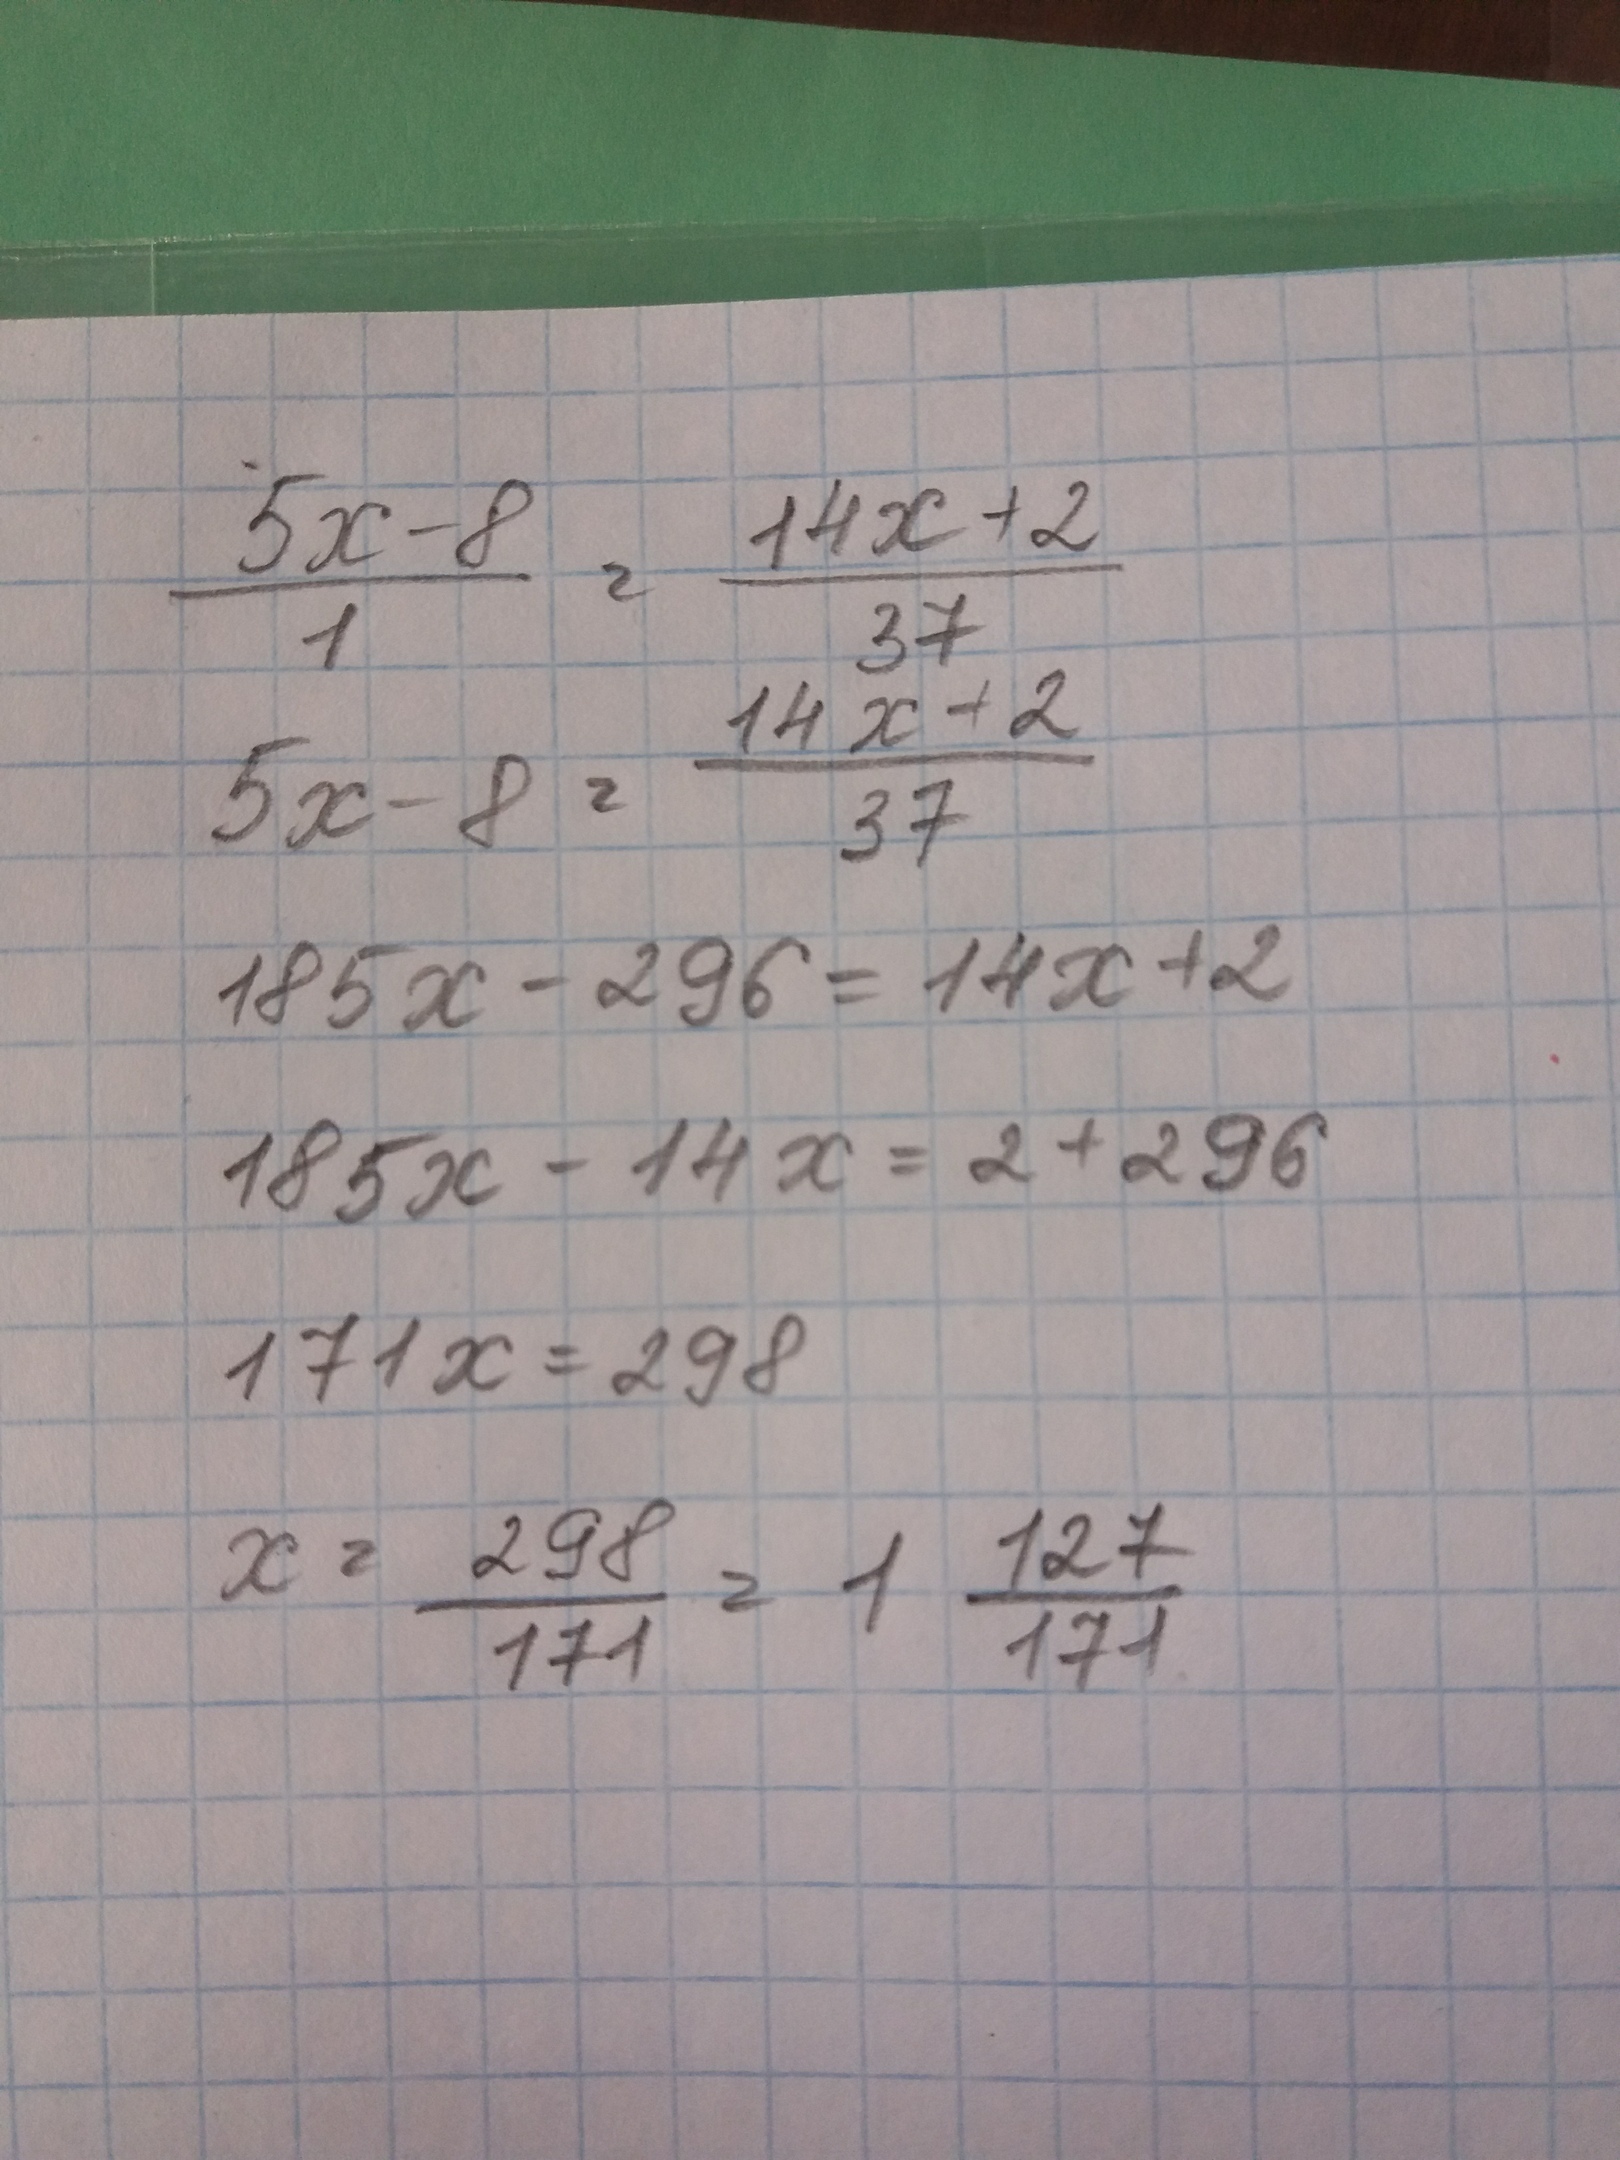 5x-8/1 = 14x+2/37
5x-8 = 14x+2/37
185x-296=14x+2
185x-14x=2+296
171x=298
x= 298/171 = 1 127/171